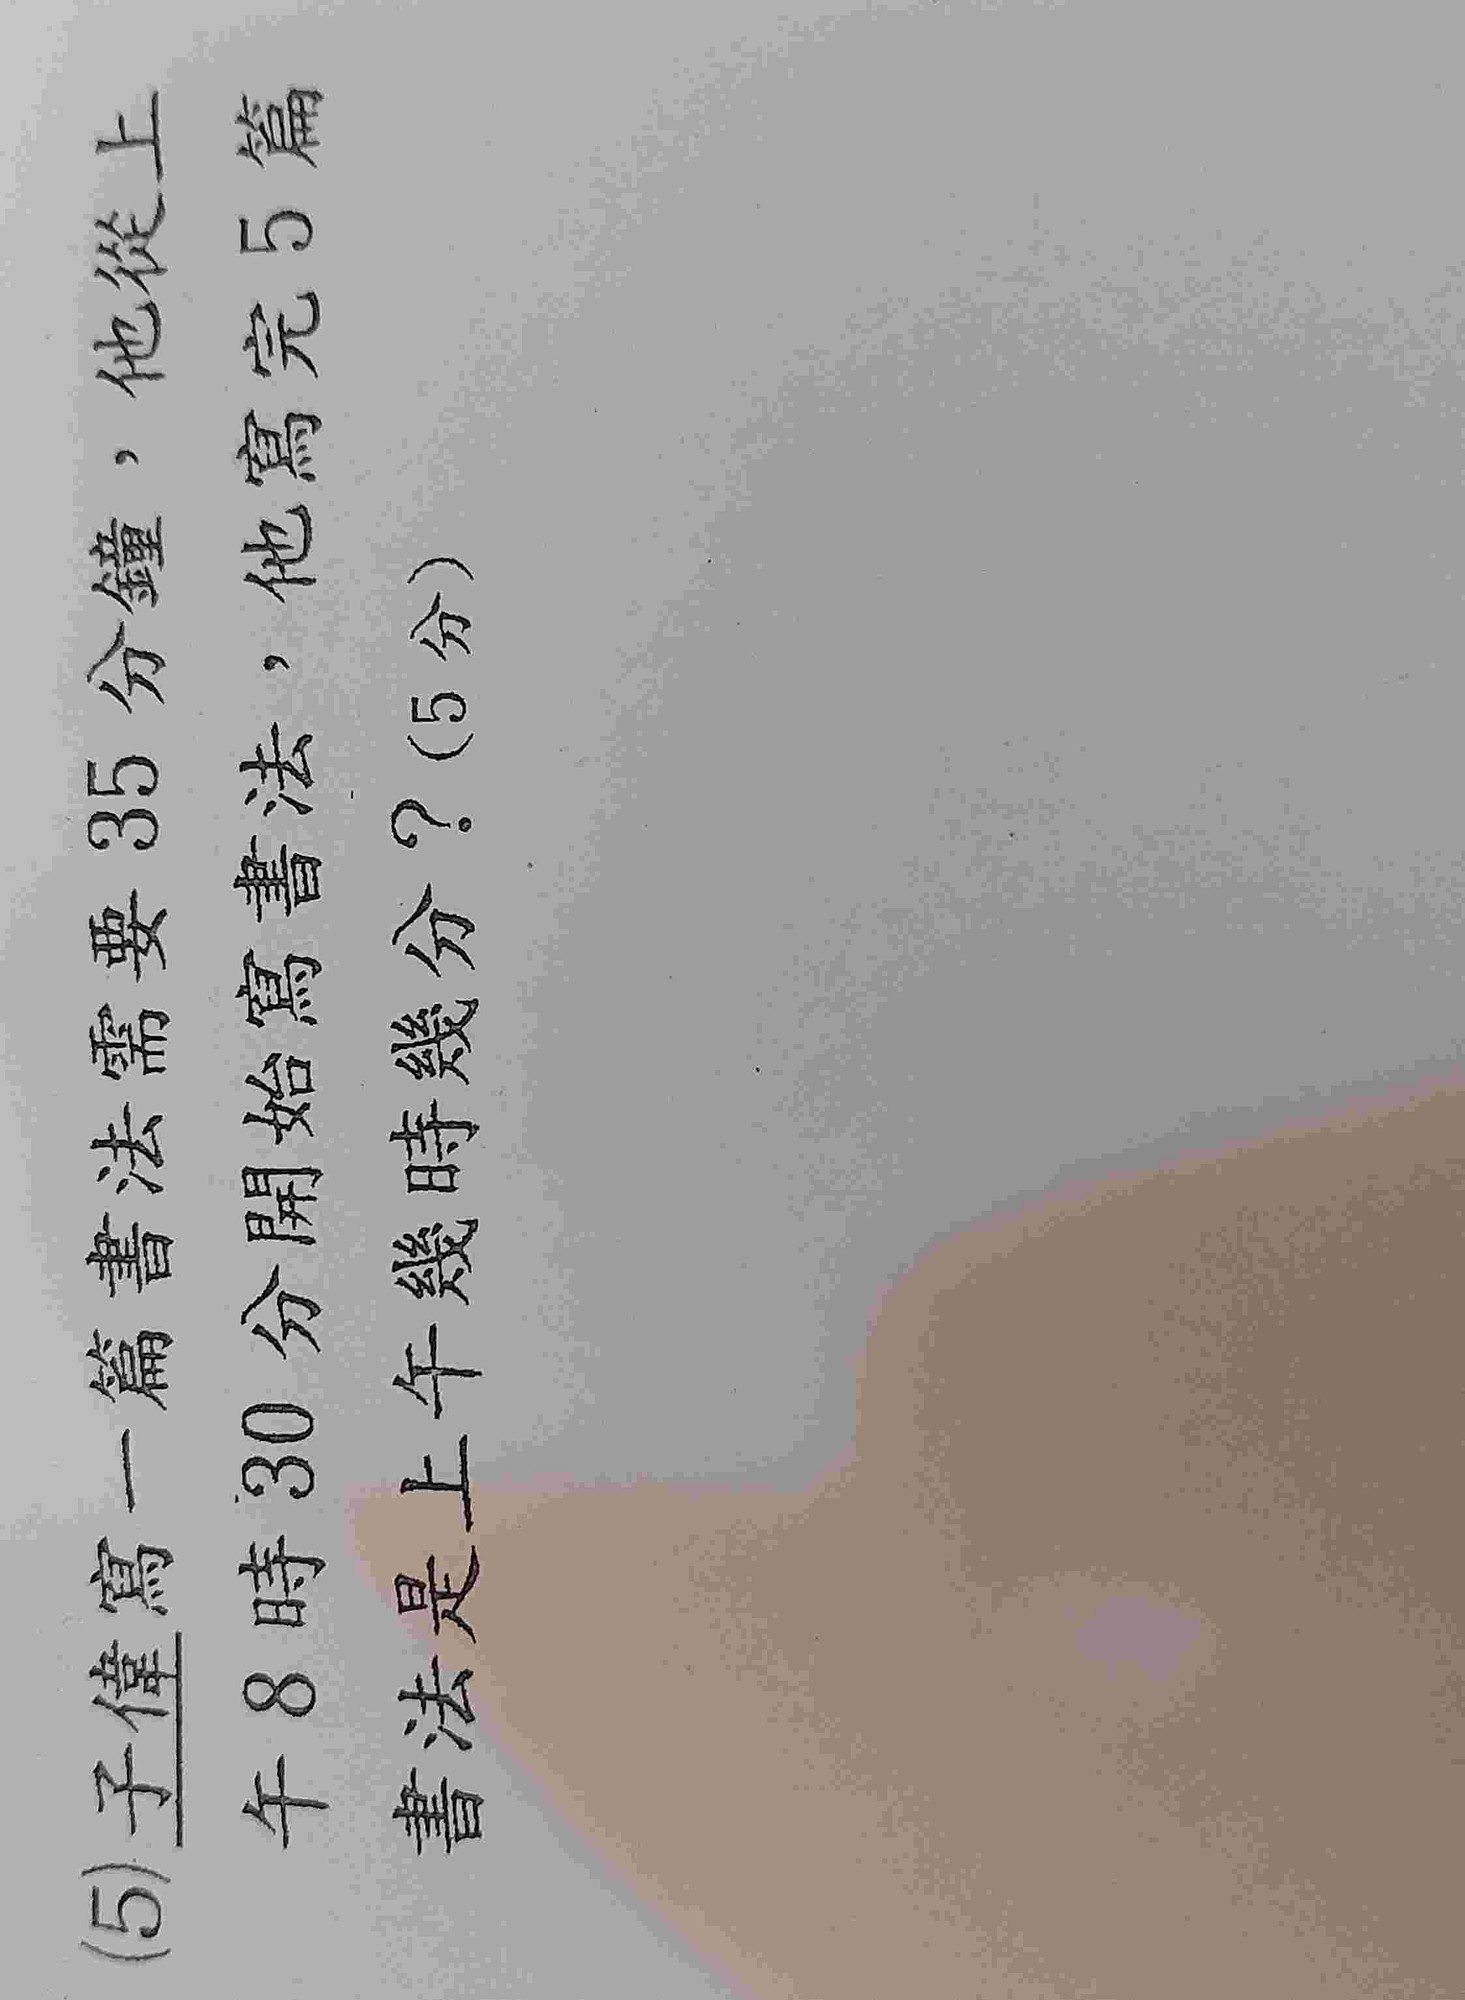 (5) 子偉寫一篇書法需要 35 分鐘，他從上
午 8 時 30 分開始寫書法，他寫完 5 篇
書法是上午幾時幾分？(5 分)